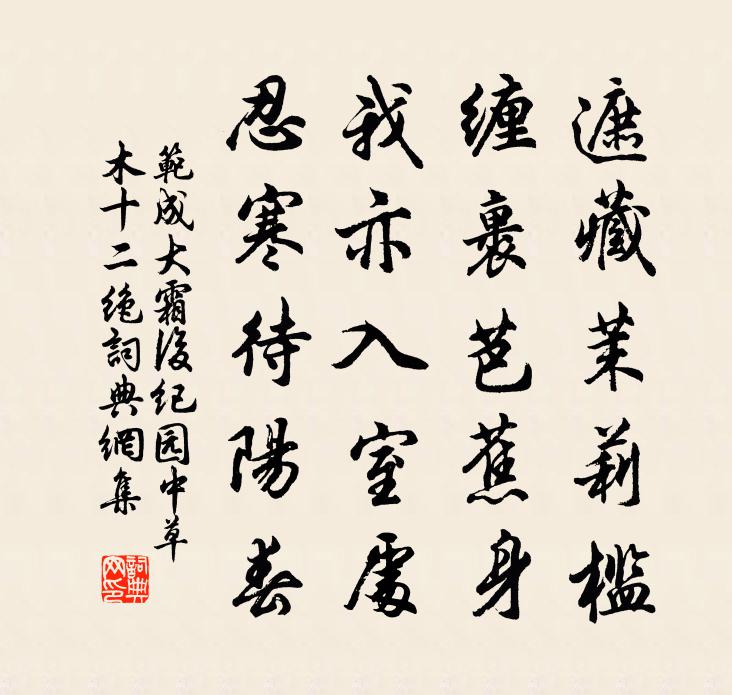 遮藏茉莉檻
纏裹芭蕉身
我亦入室處
忍寒待陽春
範成大霜後纪园中草
木十二绝詞典網集
詞典
网印